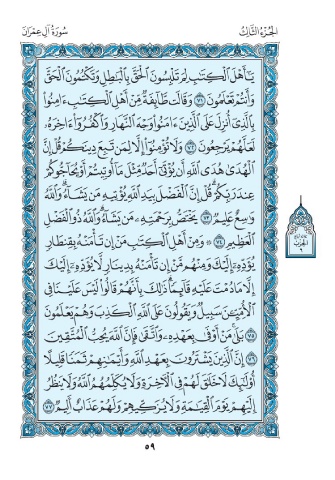 الجزء الثالث
سورة آل عمران
يَٰٓأَهۡلَ ٱلۡكِتَٰبِ لِمَ تَلۡبِسُونَ ٱلۡحَقَّ بِٱلۡبَٰطِلِ وَتَكۡتُمُونَ ٱلۡحَقَّ
وَأَنتُمۡ تَعۡلَمُونَ ٧١ وَقَالَت طَّآئِفَةٞ مِّنۡ أَهۡلِ ٱلۡكِتَٰبِ ءَامِنُواْ
بِٱلَّذِيٓ أُنزِلَ عَلَى ٱلَّذِينَ ءَامَنُواْ وَجۡهَ ٱلنَّهَارِ وَٱكۡفُرُوٓاْ ءَاخِرَهُۥ
لَعَلَّهُمۡ يَرۡجِعُونَ ٧٢ وَلَا تُؤۡمِنُوٓاْ إِلَّا لِمَن تَبِعَ دِينَكُمۡ قُلۡ إِنَّ
ٱلۡهُدَىٰ هُدَى ٱللَّهِ أَن يُؤۡتَىٰٓ أَحَدٞ مِّثۡلَ مَآ أُوتِيتُمۡ أَوۡ يُحَآجُّوكُمۡ
عِندَ رَبِّكُمۡۗ قُلۡ إِنَّ ٱلۡفَضۡلَ بِيَدِ ٱللَّهِ يُؤۡتِيهِ مَن يَشَآءُۗ وَٱللَّهُ
وَٰسِعٌ عَلِيمٞ ٧٣ يَخۡتَصُّ بِرَحۡمَتِهِۦ مَن يَشَآءُۗ وَٱللَّهُ ذُو ٱلۡفَضۡلِ
ٱلۡعَظِيمِ ٧٤ ۞ وَمِنۡ أَهۡلِ ٱلۡكِتَٰبِ مَنۡ إِن تَأۡمَنۡهُ بِقِنطَارٖ
يُؤَدِّهِۦٓ إِلَيۡكَ وَمِنۡهُم مَّنۡ إِن تَأۡمَنۡهُ بِدِينَارٖ لَّا يُؤَدِّهِۦٓ إِلَيۡكَ
إِلَّا مَا دُمۡتَ عَلَيۡهِ قَآئِمٗاۗ ذَٰلِكَ بِأَنَّهُمۡ قَالُواْ لَيۡسَ عَلَيۡنَا فِي
ٱلۡأُمِّيِّـۧنَ سَبِيلٞ وَيَقُولُونَ عَلَى ٱللَّهِ ٱلۡكَذِبَ وَهُمۡ يَعۡلَمُونَ
٧٥ بَلَىٰۚ مَنۡ أَوۡفَىٰ بِعَهۡدِهِۦ وَٱتَّقَىٰ فَإِنَّ ٱللَّهَ يُحِبُّ ٱلۡمُتَّقِينَ
٧٦ إِنَّ ٱلَّذِينَ يَشۡتَرُونَ بِعَهۡدِ ٱللَّهِ وَأَيۡمَٰنِهِمۡ ثَمَنٗا قَلِيلًا
أُوْلَٰٓئِكَ لَا خَلَٰقَ لَهُمۡ فِي ٱلۡأٓخِرَةِ وَلَا يُكَلِّمُهُمُ ٱللَّهُ وَلَا يَنظُرُ
إِلَيۡهِمۡ يَوۡمَ ٱلۡقِيَٰمَةِ وَلَا يُزَكِّيهِمۡ وَلَهُمۡ عَذَابٌ أَلِيمٞ ٧٧
٥٩